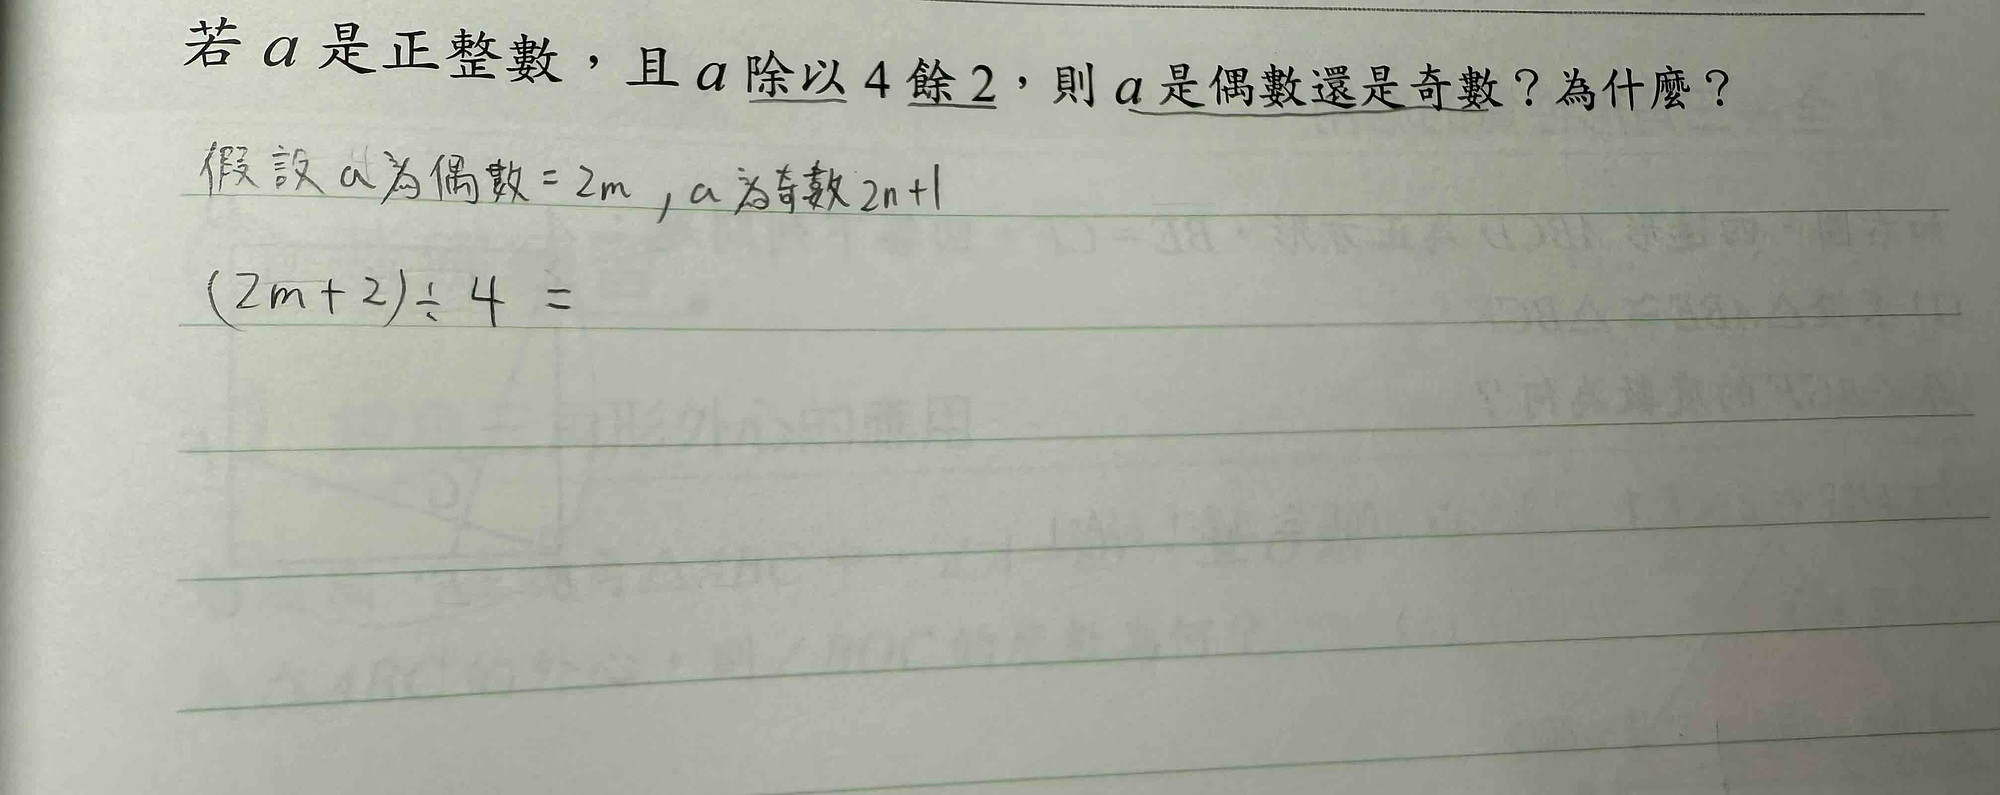 若 a 是正整數，且 a 除以 4 餘 2，則 a 是偶數還是奇數？為什麼？
假設 a 為偶數 = 2m , a 為奇數 2n+1
(2m+2)÷ 4 =